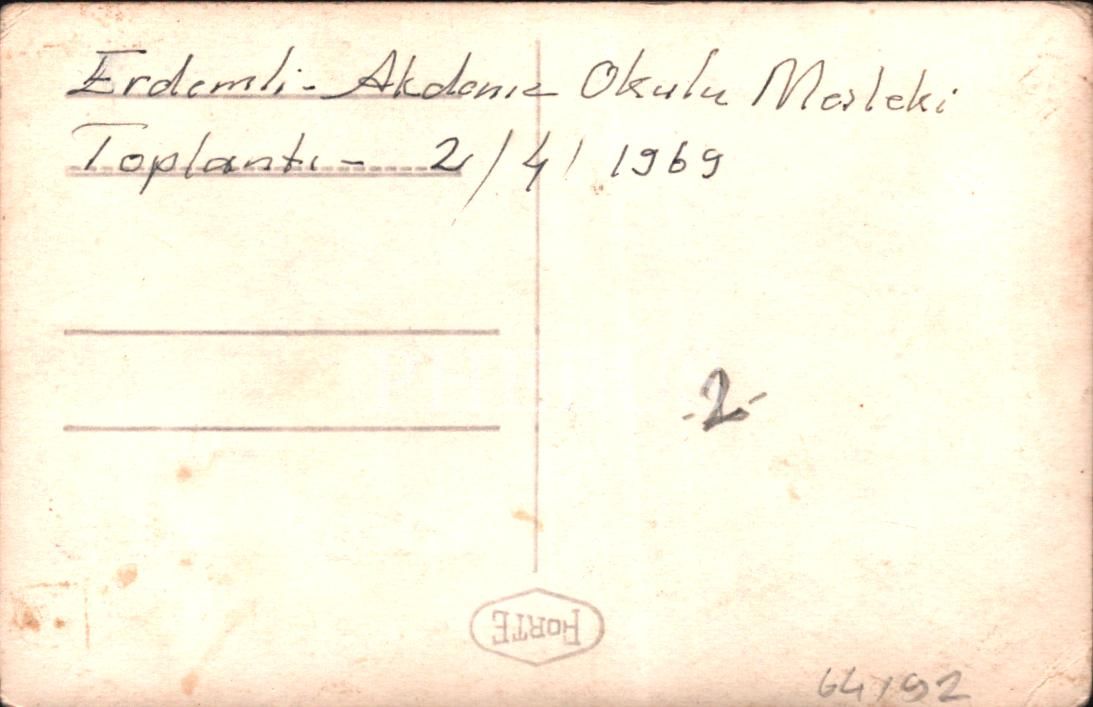 Erdemli - Akdeniz Okulu Mesleki
Toplantı - 2/4/1969
-2-
FORTE
64/92